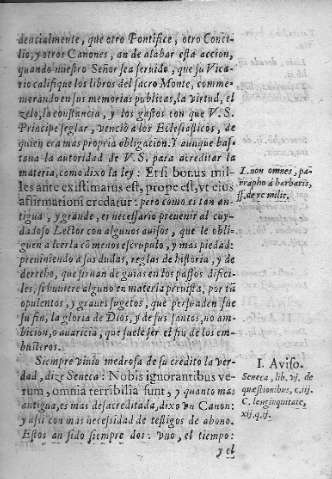 dencialmente, que otro Pontifice, otro Conci-
lio, y otros Canones, an de alabar esta accion,
quando nuestro Señor sea seruido, que su Vica-
rio califique los libros del sacro Monte, comme-
morando en sus memorias publicas, la virtud, el
zelo, la constancia, y los gastos con que V. S.
Principe seglar, venciò a los Eclesiasticos, de
quien era mas propria obligacion. Y aunque bas-
taua la autoridad de V. S. para acreditar la
materia, como dixo la ley: Etsi bonus mi-
les ante existimatus est, prope est, vt eius
affirmationi credatur: pero como es tan an-
tigua, y grande, es necessario preuenir al cuy-
dadoso Lector con algunos auisos, que le obli-
guen a leerla cõ menos escrupulo, y mas piedad:
preuiniendo a sus dudas, reglas de historia, y de
derecho, que siruan de guias en los passos difici-
les, si huuiere alguno en materia preuista, por tã
opulentos, y graues sugetos, que pretenden sue
su fin, la gloria de Dios, y de sus santos, no am-
bicion, o auaricia, que suele ser el fin de los em-
busteros.
Siempre viuio medrosa de su credito la ver-
dad, dize Seneca: Nobis ignorantibus ve-
rum, omnia terribilia sunt, y quanto mas
antigua, es mas desacreditada, dixo vn Canon:
y assi con mas necessidad de testigos de abono.
Estos an sido siempre dos: vno, el tiempo:
y el
L. non omnes, pa-
rrapho à barbaris,
ff. de re milit.
I. Auiso.
Seneca, lib. vj. de
questionibus, c. iij.
C. longinquitate,
xij. q. ij.